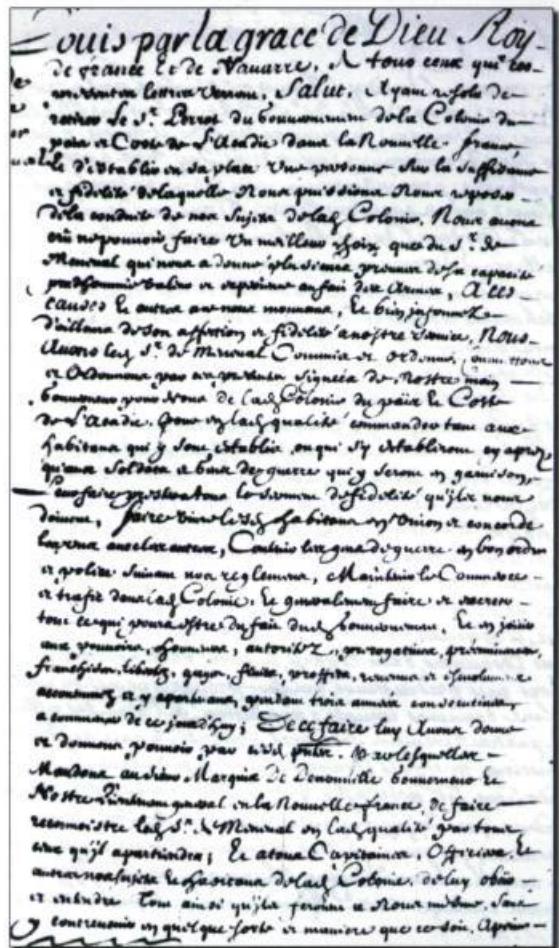 Louis par la grace de Dieu Roy
de france et de Navarre, A tous ceux qui ces
presentes lettres verront, Salut, Ayant resolu de
retirer le Sr. Perrot du Gouvernement de la Colonie du
païs et Coste de l'Acadie dans la Nouvelle france,
et d'establir en sa place une personne sur la suffisance
et fidelité de laquelle Nous puissions Nous reposer
de la conduite de nos Sujets de lad. Colonie, Nous avons
crû ne pouvoir faire un meilleur choix que du Sr. de
Meneval qui nous a donné plusieurs preuves de sa capacité
valeur et experience au fait des Armes, A ces
causes et autres a ce nous mouvans, Et bien informez
d'ailleurs de son affection et fidelité a nostre service, Nous
Avons led. Sr. de Meneval Commis et Ordonné, Commettons
et Ordonnons par ces presentes signées de Nostre main
Gouverneur pour Nous de lad. Colonie du païs et Coste
de l'Acadie, pour en lad. qualité commander tant aux
habitans qui y sont establis ou qui s'y establiront cy apres
qu'aux Soldats et gens de guerre qui y seront en garnison,
Leur faire prester a tous le serment de fidelité qu'ils nous
doivent, faire vivre lesd. habitans en Union et concorde
les uns avec les autres, Contenir les gens de guerre en bon ordre
et police suivant nos reglemens, Maintenir le Commerce
et trafic dans lad. Colonie. Et generalement faire et
tout ce qui pourra estre du fait dud. Gouvernement, Et en jouir
aux pouvoirs, honneurs, autoritez, prerogatives, preeminences,
franchises, libertez, gages, fruits, proffits, revenus et esmolumens
accoutumez et y apartenans, pendant trois années consecutives,
a commencer de ce jourdhuy; De ce faire luy Avons donné
et donnons pouvoir par cesd. Par lesquelles
Mandons au Sieur Marquis de Denonville Gouverneur et
Nostre Lieutenant general en la Nouvelle france, de faire
reconnoistre led. Sr. de Meneval en lad. qualité par tous
ceux qu'il apartiendra; Et a tous Capitaines, Officiers, et
autres nos sujets et habitans de lad. Colonie, de luy obeir
et entendre Tout ainsi qu'ils feroient a Nous mesme, Sans
y contrevenir en quelque sorte et maniere que ce soit, Apeine